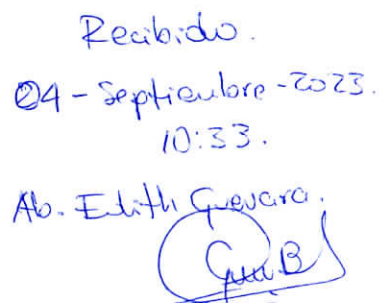 Recibido.
04 - Septiembre - 2023.
10:33.
Ab. Edith Guevara.